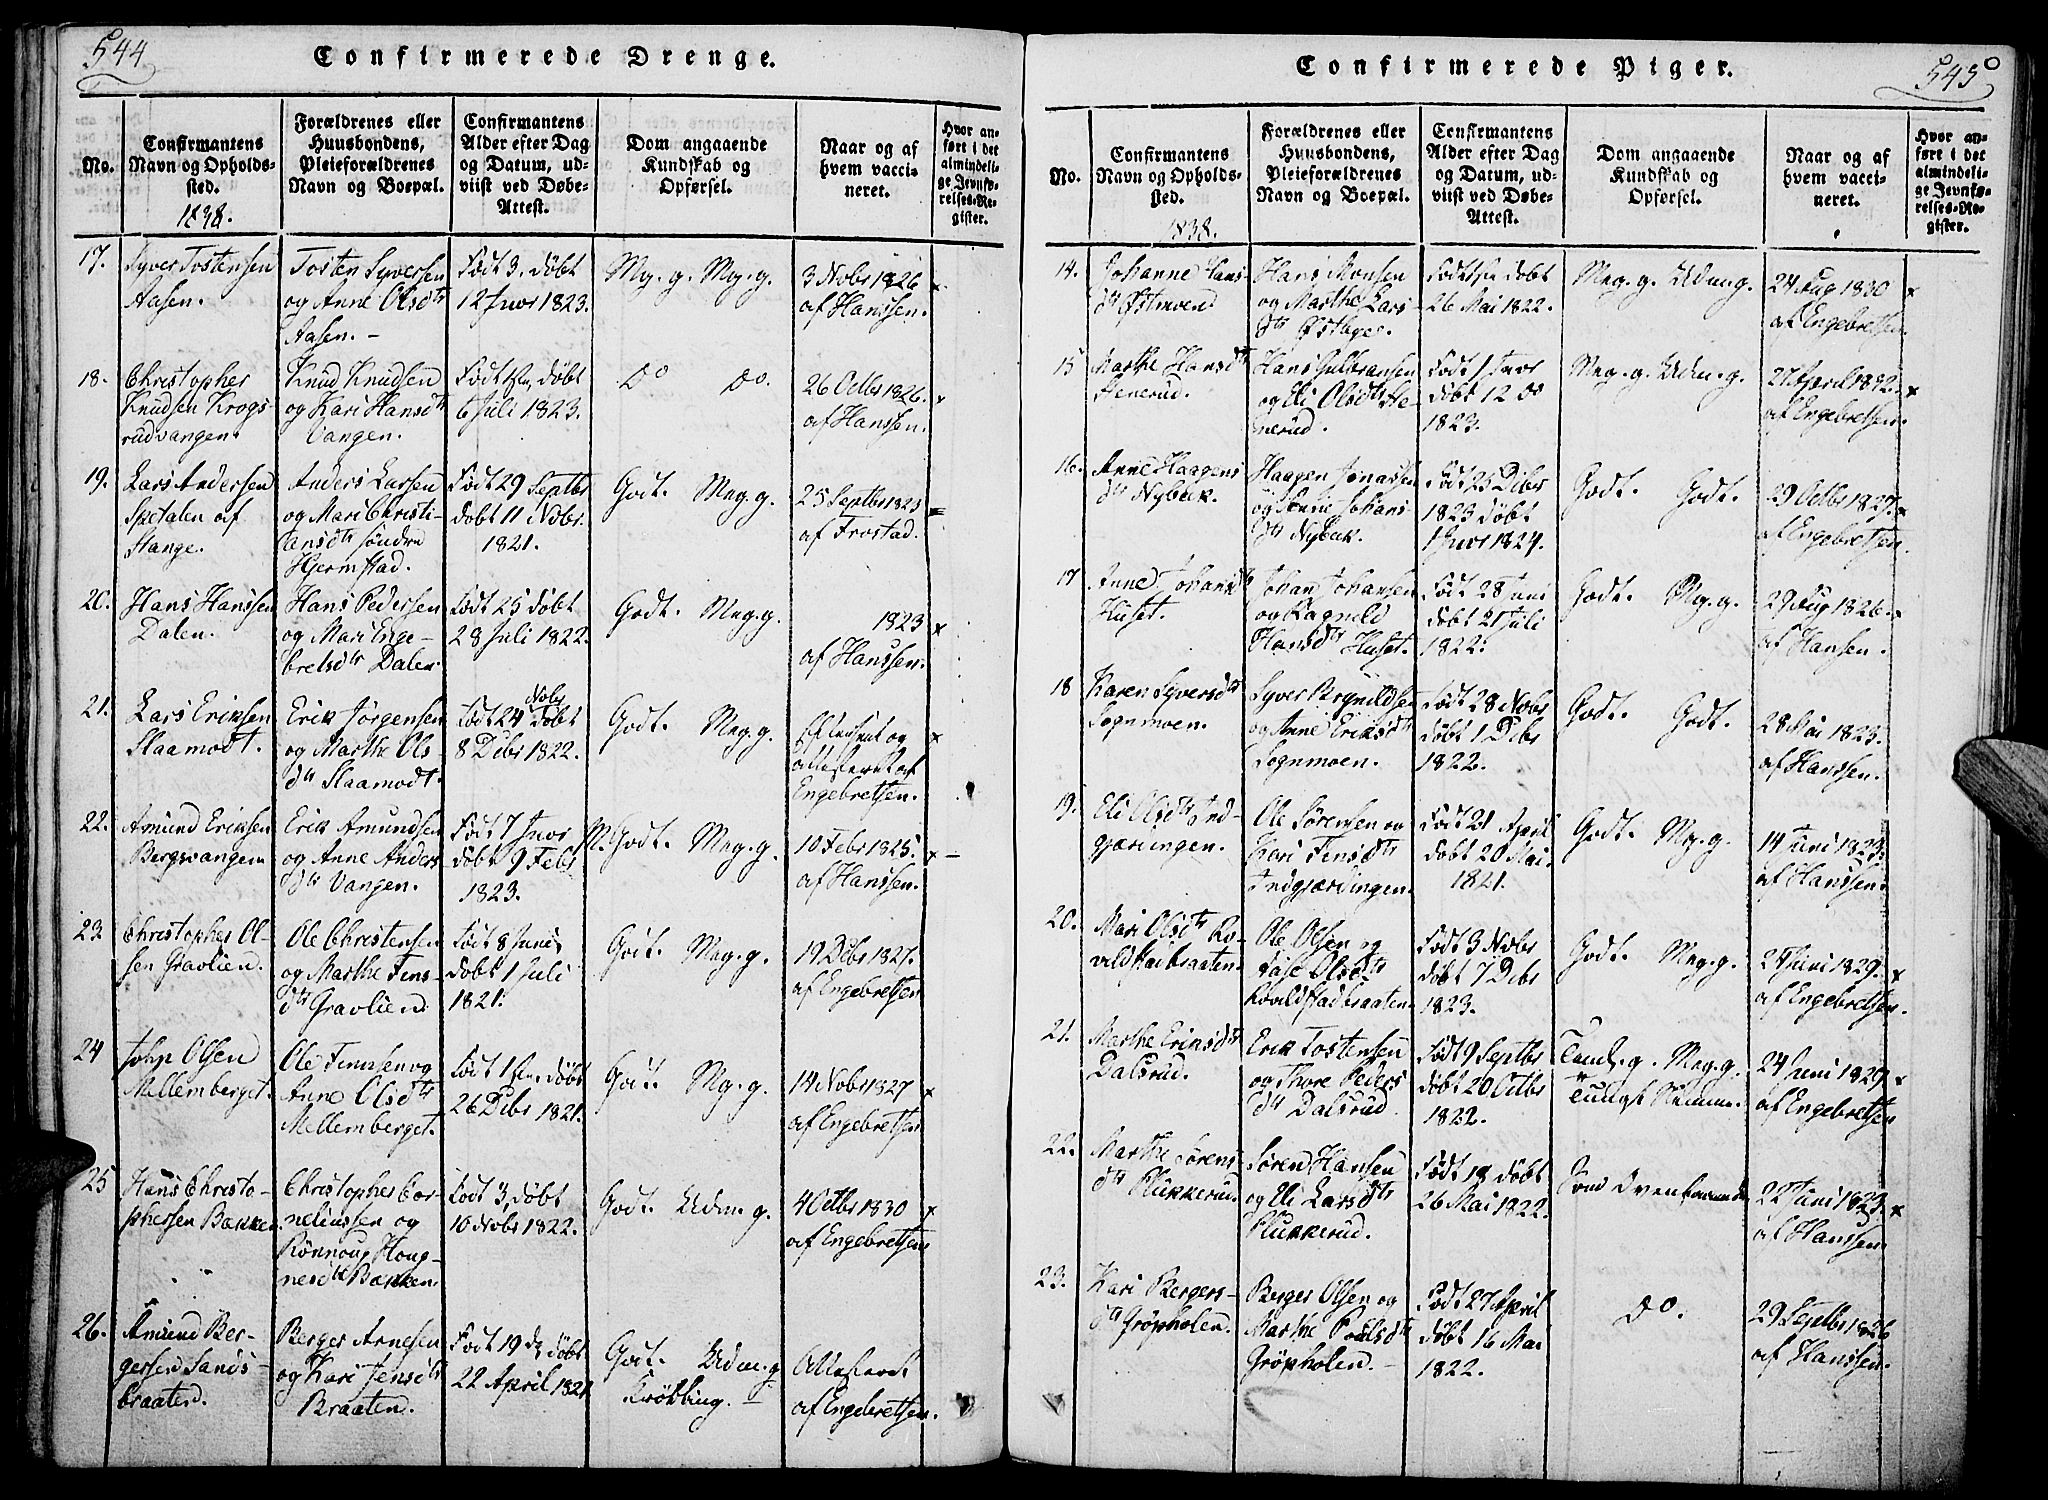 544
Confirmerede Drenge.
No.
Confirmantens
Navn og Opholds-
sted.
1838.
Forældrenes eller
Huusbondens,
Pleieforældrenes
Navn og Boepæl.
Confirmantens
Alder efter Dag
og Datum, ud-
viist ved Døbe-
Attest.
Dom angaaende
Kundskab og
Opførsel.
Naar og af
hvem vacci-
neret.
Hvor an-
ført i det
almindeli-
ge Jevnfø-
relses-Re-
gister.
17.
Syver Tostensen
Aasen.
Tosten Syversen
og Anne Olsdtr
Aasen. -
Født 3. døbt
12 Jnvr 1823.
Mg. g. Mg. g.
3 Novbr 1826
af Hanssen.
18.
Christopher
Knudsen Krogs-
rudvangen.
Knud Knudsen
og Kari Hansdtr
Vangen.
Født døbt
6 Juli 1823.
Do Do.
26 Octbr 1826.
af Hanssen.
19.
Lars Andersen
Spetalen af
Stange.
Anders Larsen
og Mari Christi-
ansdtr søndre
Hjermstad.
Født 29 Septbr
døbt 11 Novbr.
1821.
Godt. Meg. g.
25 Septbr 1823
af Frostad.
20.
Hans Hanssen
Dalen.
Hans Pedersen
og Mari Enge-
bretsdtr Dalen.
Født 25 døbt
28 Juli 1822.
Godt. Meg. g.
1823
af Hanssen.
21.
Lars Eriksen
Slaamodt.
Erik Jørgensen
og Marthe Ols-
dtr Slaamodt.
Født 24 Novbr døbt
8 Decbr 1822.
Godt. Meg. g.
Efterseet og
attesteret af
Engebretsen.
22.
Amund Eriksen
Bergsvangen
Erik Amundsen
og Anne Anders
dtr Vangen.
Født 7 Jnvr
døbt 9 Febr
1823.
M. Godt. Meg. g.
10 Febr 1825.
af Hanssen.
23
Christopher Ol-
sen Gravlien.
Ole Christensen
og Marthe Fins-
dtr Gravlien.
Født 8 Juni
døbt 1 Juli
1821.
Godt. Meg. g.
19 Decbr 1827.
af Engebretsen
24
John Olsen
Mellemberget.
Ole Finnsen og
Anne Olsdtr
Mellemberget.
Født 1 døbt
26 Decbr 1821.
Godt. Mg. g.
14 Novbr 1827
af Engebretsen
25
Hans Christo-
phersen Bakken
Christopher Cor-
neliussen og
Rønnoug Houg-
nesdtr Bakken.
Født 3, døbt
10 Novbr 1822.
Godt. Udm. g.
4 Octbr 1830
af Engebretsen
26.
Amund Ber-
gersen Sands-
braaten.
Berger Arnesen
og Kari Jensdtr
Braaten.
Født 19 døbt
22 April 1821
Godt. Udm. g
Krøbling.
Attesteret
af Engebretsen.
545
Confirmerede Piger.
No.
Confirmantens
Navn og Opholds-
sted.
1838.
Forældrenes eller
Huusbondens,
Pleieforældrenes
Navn og Boepæl.
Confirmantens
Alder efter Dag
og Datum, ud-
viist ved Døbe-
Attest.
Dom angaaende
Kundskab og
Opførsel.
Naar og af
hvem vacci-
neret.
Hvor an-
ført i det
almindeli-
ge Jevnfø-
relses-Re-
gister.
14.
Johanne Hans
dtr Østmoen
Hans Monsen
og Marthe Lars-
dtr
Født døbt
26 Mai 1822.
Meg. g. Udm. g.
24 Aug 1830
af Engebretsen.
15
Marthe Hansdtr
Stenerud.
Hans Gulbransen
og Eli Olsdtr Ste-
nerud.
Født 1 Jnvr
døbt 12 do
1823.
Meg. g. Udm. g.
27 April 1832.
af Engebretsen.
16.
Anne Haagens
dtr Nybek.
Haagen Jonassen
og Anne Johans-
dtr Nybek.
Født 25 Decbr
1823 døbt
1 Jnvr 1824.
Godt. Godt.
29 Octbr 1827.
af Engebretsen.
17
Anne Johansdtr
Huset.
Johan Johansen
og Ragnild
Hansdtr Huset.
Født 28 Juni
døbt 21 Juli
1822.
Godt. Mg. g.
29 Aug 1826.
af Hansen.
18
Karen Syversdtr
Sognmoen.
Syver Brynildsen
og Anne Eriksdtr
Sognmoen.
Født 28 Novbr
døbt 1 Decbr
1822.
Godt. Godt.
28 Mai 1823.
af Hanssen.
19.
Eli Olsdtr Ind-
gjæringen.
Ole Sørensen og
Kari Finsdtr
Indgjærdingen.
Født 21 April
døbt 20 Mai.
1821.
Godt. Mg. g.
14 Juni 1823.
af Hanssen.
20.
Mari Olsdtr Ro-
valdstadbraaten.
Ole Olsen og
Olsdtr
Rovaldstadbraaten.
Født 3 Novbr
døbt 7 Decbr
1823.
Godt. Meg. g.
24 Juni 1829.
af Engebretsen.
21.
Marthe Eriksdtr
Dalsrud.
Erik Tostensen
og Thore Peders
dtr Dalsrud
Født 9 Septbr
døbt 20 Octbr
1822.
Teml. g. Meg. g.
Tungt Nemme.
24 Juni 1829.
af Engebretsen
22.
Marthe Sørens-
dtr Plukkerud.
Søren Hansen
og Eli Larsdtr
Plukkerud.
Født 18 døbt
26 Mai 1822.
Som Ovenfor
22 Juni 1823.
af Hanssen.
23.
Kari Bergers-
dtr Grøpholen.
Berger Olsen og
Marthe Poulsdtr
Grøpholen. -
Født 27 April
døbt 16 Mai
1822.
Do.
29 Septbr 1826
af Hanssen.